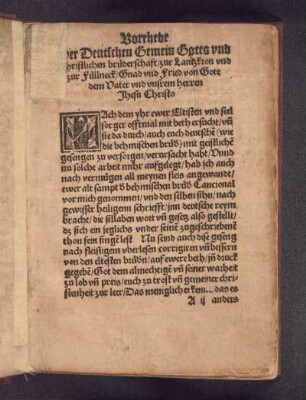 Vorrhede
Der Deutschen Gemein Gotts vnd
christlichen brüderschafft zur Lantzkron vnd
zur Fülneck/ Gnad vnd Fried von Gott
dem Vater vnd vnsrem herren
Jhesu Christo
NAch dem yhr ewer Eltisten vnd seel
sorger offtmal mit beth ersucht/ vñ
sie da durch/ auch euch deutschē/ wie
die behmischen brüd/ mit geistlichē
gesengen zu versorgen/ verursacht habt/ Vnnd
nu solche arbeit mihr auffgelegt/ hab ich auch
nach vermügen all meynen fleis angewandt/
ewer alt sampt d behmischen brüd Cancional
vor mich genommen/ vnd den selben sihn/ nach
gewisser heiligenn schriefft/ jnn deutsche reym
bracht/ die sillaben wort vñ gesetz also gestellt/
dz sich ein jeglichs vnder seinē zugeschriebenē
thon fein singē lest Nu seind auch dise geseng
nach fleissigem vberlesen corrigiren vñ bessern
von den eltesten brüdn/ auff ewer beth/ jn druck
gegebē/ Got dem almechtigē vñ seiner warheit
zu lob vñ preis/ euch zu trost vñ gemeiner chri-
stenheit zur leer/ Das meniglich erken das es
A ij anders